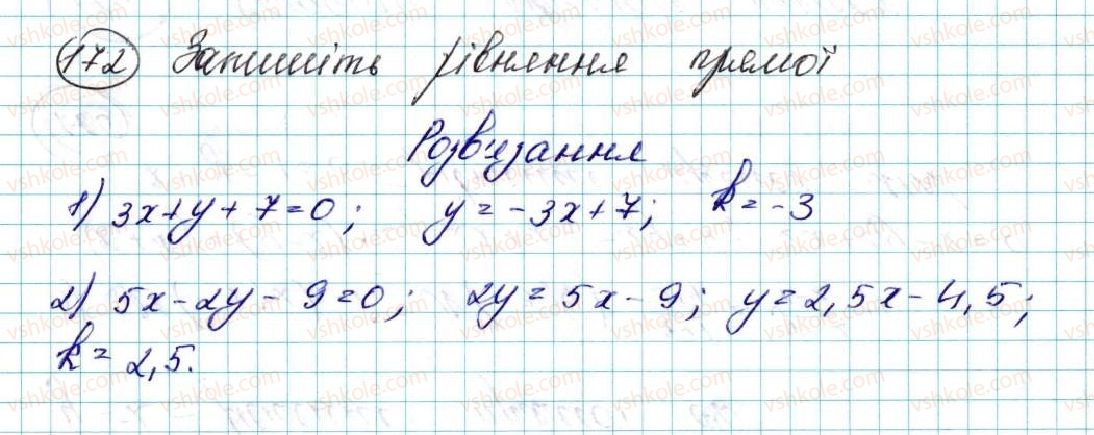 172 Запишіть рівняння прямої
Розв'язання
1) 3x+y+7=0; y=-3x+7; k=-3
2) 5x-2y-9=0; 2y=5x-9; y=2,5x-4,5;
k=2,5.